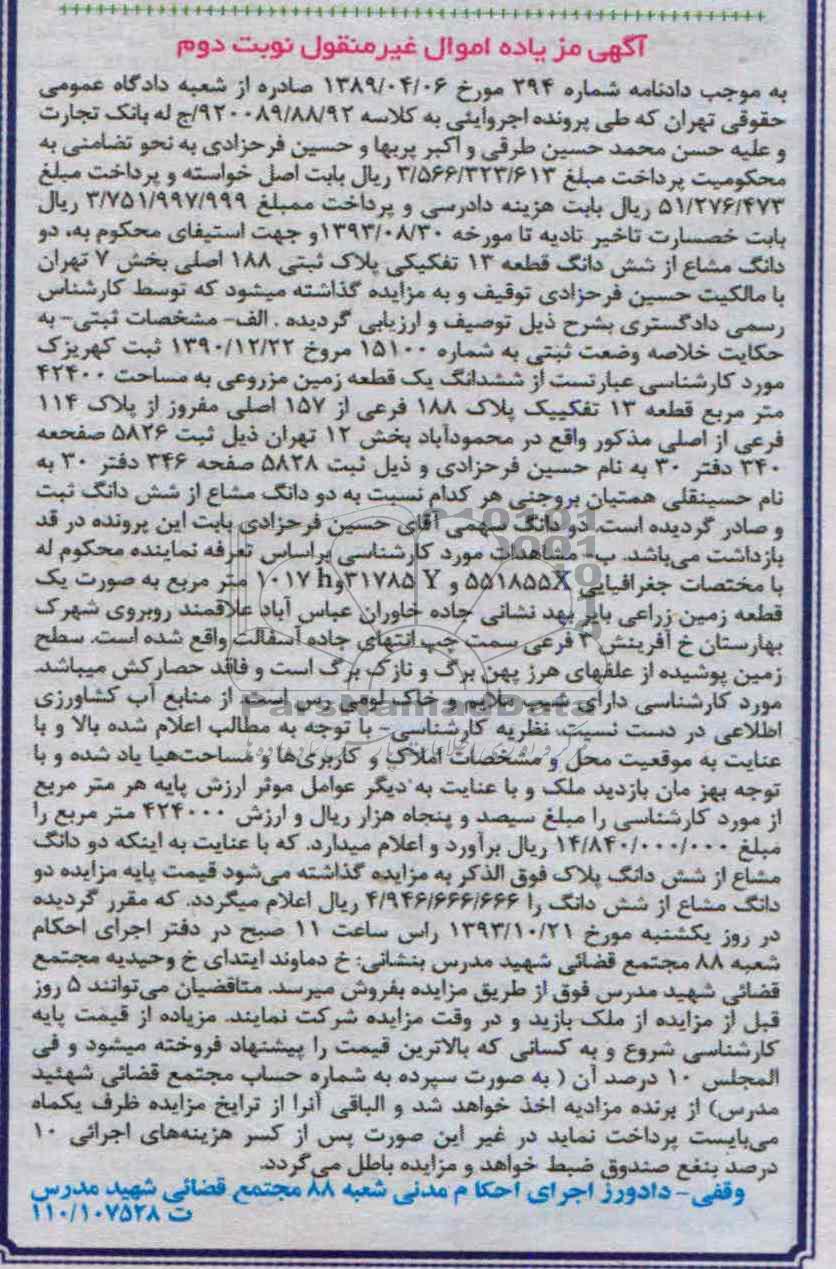 آگهی مز یاده اموال غیرمنقول نوبت دوم
به موجب دادنامه شماره ۲۹۴ مورخ ۱۳۸۹/۰۴/۰۶ صادره از شعبه دادگاه عمومی
حقوقی تهران که طی پرونده اجروایئی به کلاسه ۹۲۰۰۸۹/۸۸/۹۲/ج له بانک تجارت
و علیه حسن محمد حسین طرقی و اکبر پربها و حسین فرحزادی به نحو تضامنی به
محکومیت پرداخت مبلغ ۳/۵۶۶/۳۲۳/۶۱۳ ریال بابت اصل خواسته و پرداخت مبلغ
۵۱/۲۷۶/۴۷۳ ریال بابت هزینه دادرسی و پرداخت ممبلغ ۳/۷۵۱/۹۹۷/۹۹۹ ریال
بابت خصسارت تاخیر تادیه تا مورخه ۱۳۹۳/۰۸/۳۰و جهت استیفای محکوم به، دو
دانگ مشاع از شش دانگ قطعه ۱۳ تفکیکی پلاک ثبتی ۱۸۸ اصلی بخش ۷ تهران
با مالکیت حسین فرحزادی توقیف و به مزایده گذاشته میشود که توسط کارشناس
رسمی دادگستری بشرح ذیل توصیف و ارزیابی گردیده . الف- مشخصات ثبتی- به
حکایت خلاصه وضعت ثبتی به شماره ۱۵۱۰۰ مروخ ۱۳۹۰/۱۲/۲۲ ثبت کهریزک
مورد کارشناسی عبارتست از ششدانگ یک قطعه زمین مزروعی به مساحت ۴۲۴۰۰
متر مربع قطعه ۱۳ تفکییک پلاک ۱۸۸ فرعی از ۱۵۷ اصلی مفروز از پلاک ۱۱۴
فرعی از اصلی مذکور واقع در محمودآباد بخش ۱۲ تهران ذیل ثبت ۵۸۲۶ صفحعه
۳۴۰ دفتر ۳۰ به نام حسین فرحزادی و ذیل ثبت ۵۸۲۸ صفحه ۳۴۶ دفتر ۳۰ به
نام حسینقلی همتیان بروجنی هر کدام نسبت به دو دانگ مشاع از شش دانگ ثبت
و صادر گردیده است. دو دانگ سهمی آقای حسین فرحزادی بابت این پرونده در قد
بازداشت می‌باشد. ب- مشاهدات مورد کارشناسی براساس تعرفه نماینده محکوم له
با مختصات جغرافیایی ۵۵۱۸۵۵X و ۳۱۷۸۵ Yو۱۰۱۷ h متر مربع به صورت یک
قطعه زمین زراعی بایر بهد نشانی جاده خاوران عباس آباد علاقمند روبروی شهرک
بهارستان خ آفرینش ۳ فرعی سمت چپ انتهای جاده آسفالت واقع شده است. سطح
زمین پوشیده از علفهای هرز پهن برگ و نازک برگ است و فاقد حصارکش میباشد.
مورد کارشناسی دارای شیب ملایم و خاک لومی رس است. از منابع آب کشاورزی
اطلاعی در دست نسیت. نظریه کارشناسی- با توجه به مطالب اعلام شده بالا و با
عنایت به موقعیت محل و مشخصات املاک و کاربری‌ها و مساحت‌هیا یاد شده و با
توجه بهز مان بازدید ملک و با عنایت به دیگر عوامل موثر ارزش پایه هر متر مربع
از مورد کارشناسی را مبلغ سیصد و پنجاه هزار ریال و ارزش ۴۲۴۰۰۰ متر مربع را
مبلغ ۱۴/۸۴۰/۰۰۰/۰۰۰ ریال برآورد و اعلام میدارد. که با عنایت به اینکه دو دانگ
مشاع از شش دانگ پلاک فوق الذکر به مزایده گذاشته می‌شود قیمت پایه مزایده دو
دانگ مشاع از شش دانگ را ۴/۹۴۶/۶۶۶/۶۶۶ ریال اعلام میگردد. که مقرر گردیده
در روز یکشنبه مورخ ۱۳۹۳/۱۰/۲۱ راس ساعت ۱۱ صبح در دفتر اجرای احکام
شعبه ۸۸ مجتمع قضائی شهید مدرس بنشانی: خ دماوند ایتدای خ وحیدیه مجتمع
قضائی شهید مدرس فوق از طریق مزایده بفروش میرسد. متاقضیان می‌توانند ۵ روز
قبل از مزایده از ملک بازید و در وقت مزایده شرکت نمایند. مزیاده از قیمت پایه
کارشناسی شروع و به کسانی که بالاترین قیمت را پیشنهاد فروخته میشود و فی
المجلس ۱۰ درصد آن ( به صورت سپرده به شماره حساب مجتمع قضائی شهئید
مدرس) از برنده مزادیه اخذ خواهد شد و الباقی آنرا از ترایخ مزایده ظرف یکماه
می‌بایست پرداخت نماید در غیر این صورت پس از کسر هزینه‌های اجرائی ۱۰
درصد بنفع صندوق ضبط خواهد و مزایده باطل می‌گردد.
وقفی- دادورز اجرای احکا م مدنی شعبه ۸۸ مجتمع قضائی شهید مدرس
ت ۱۱۰/۱۰۷۵۲۸
ParsNamadData